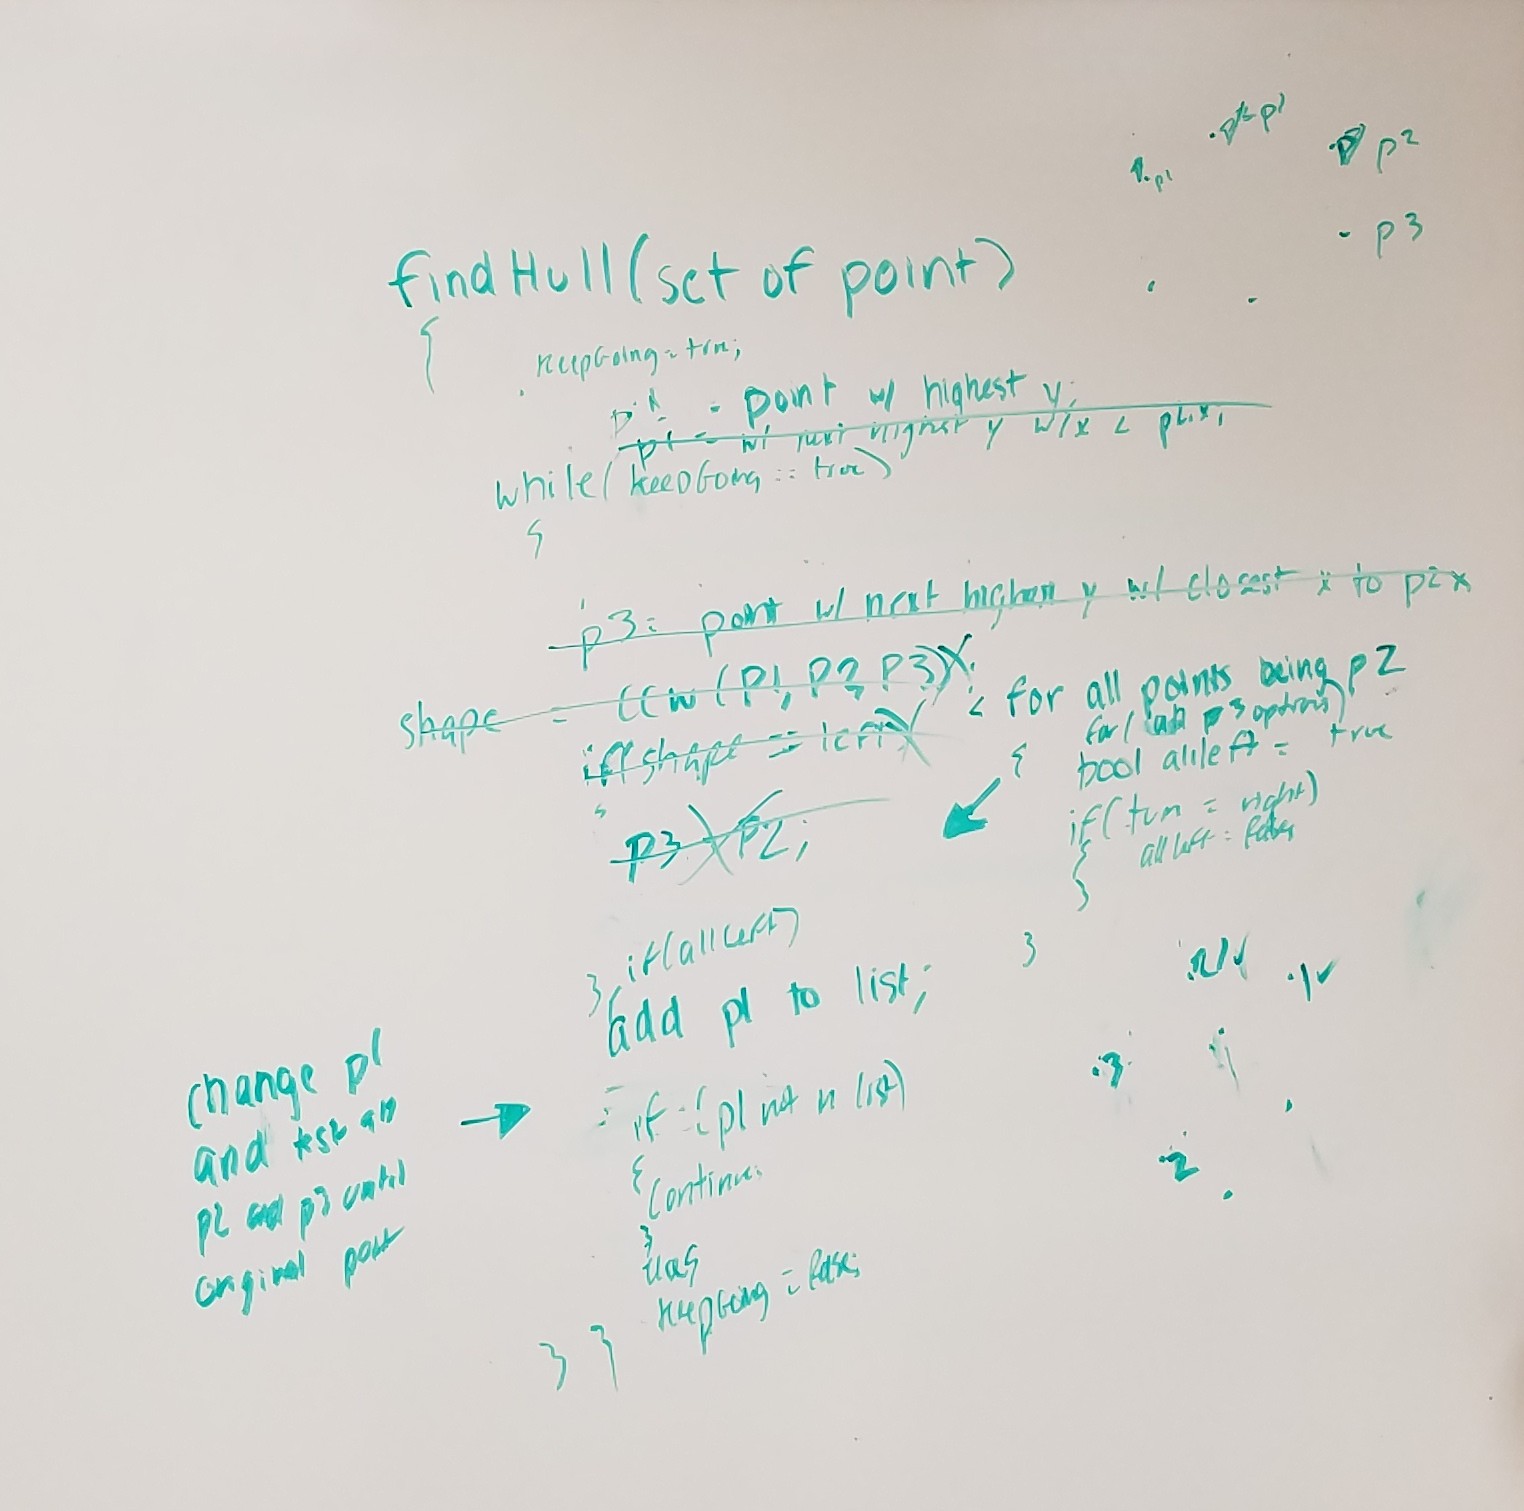 p1
p1
p2
p3
findHull(set of point)
{
keepGoing = true;
p1 = point w/ highest y;
p1 = w/ next highest y w/x < p2.x;
while(keepGoing == true)
{
p3 = point w/ next highest y w/ closest x to p2 x
shape = ccw(P1, P2, P3)
if(shape == left)
p3 p2;
for all points being p2
for(all p3 options)
{ bool allleft = true
if(turn = right)
{ allleft = false
}
}
} if(allLeft)
add p1 to list;
if (p1 not in list)
{
continue;
}
keepGoing = false;
} }
change p1
and test all
p2 and p3 until
original point
3
2